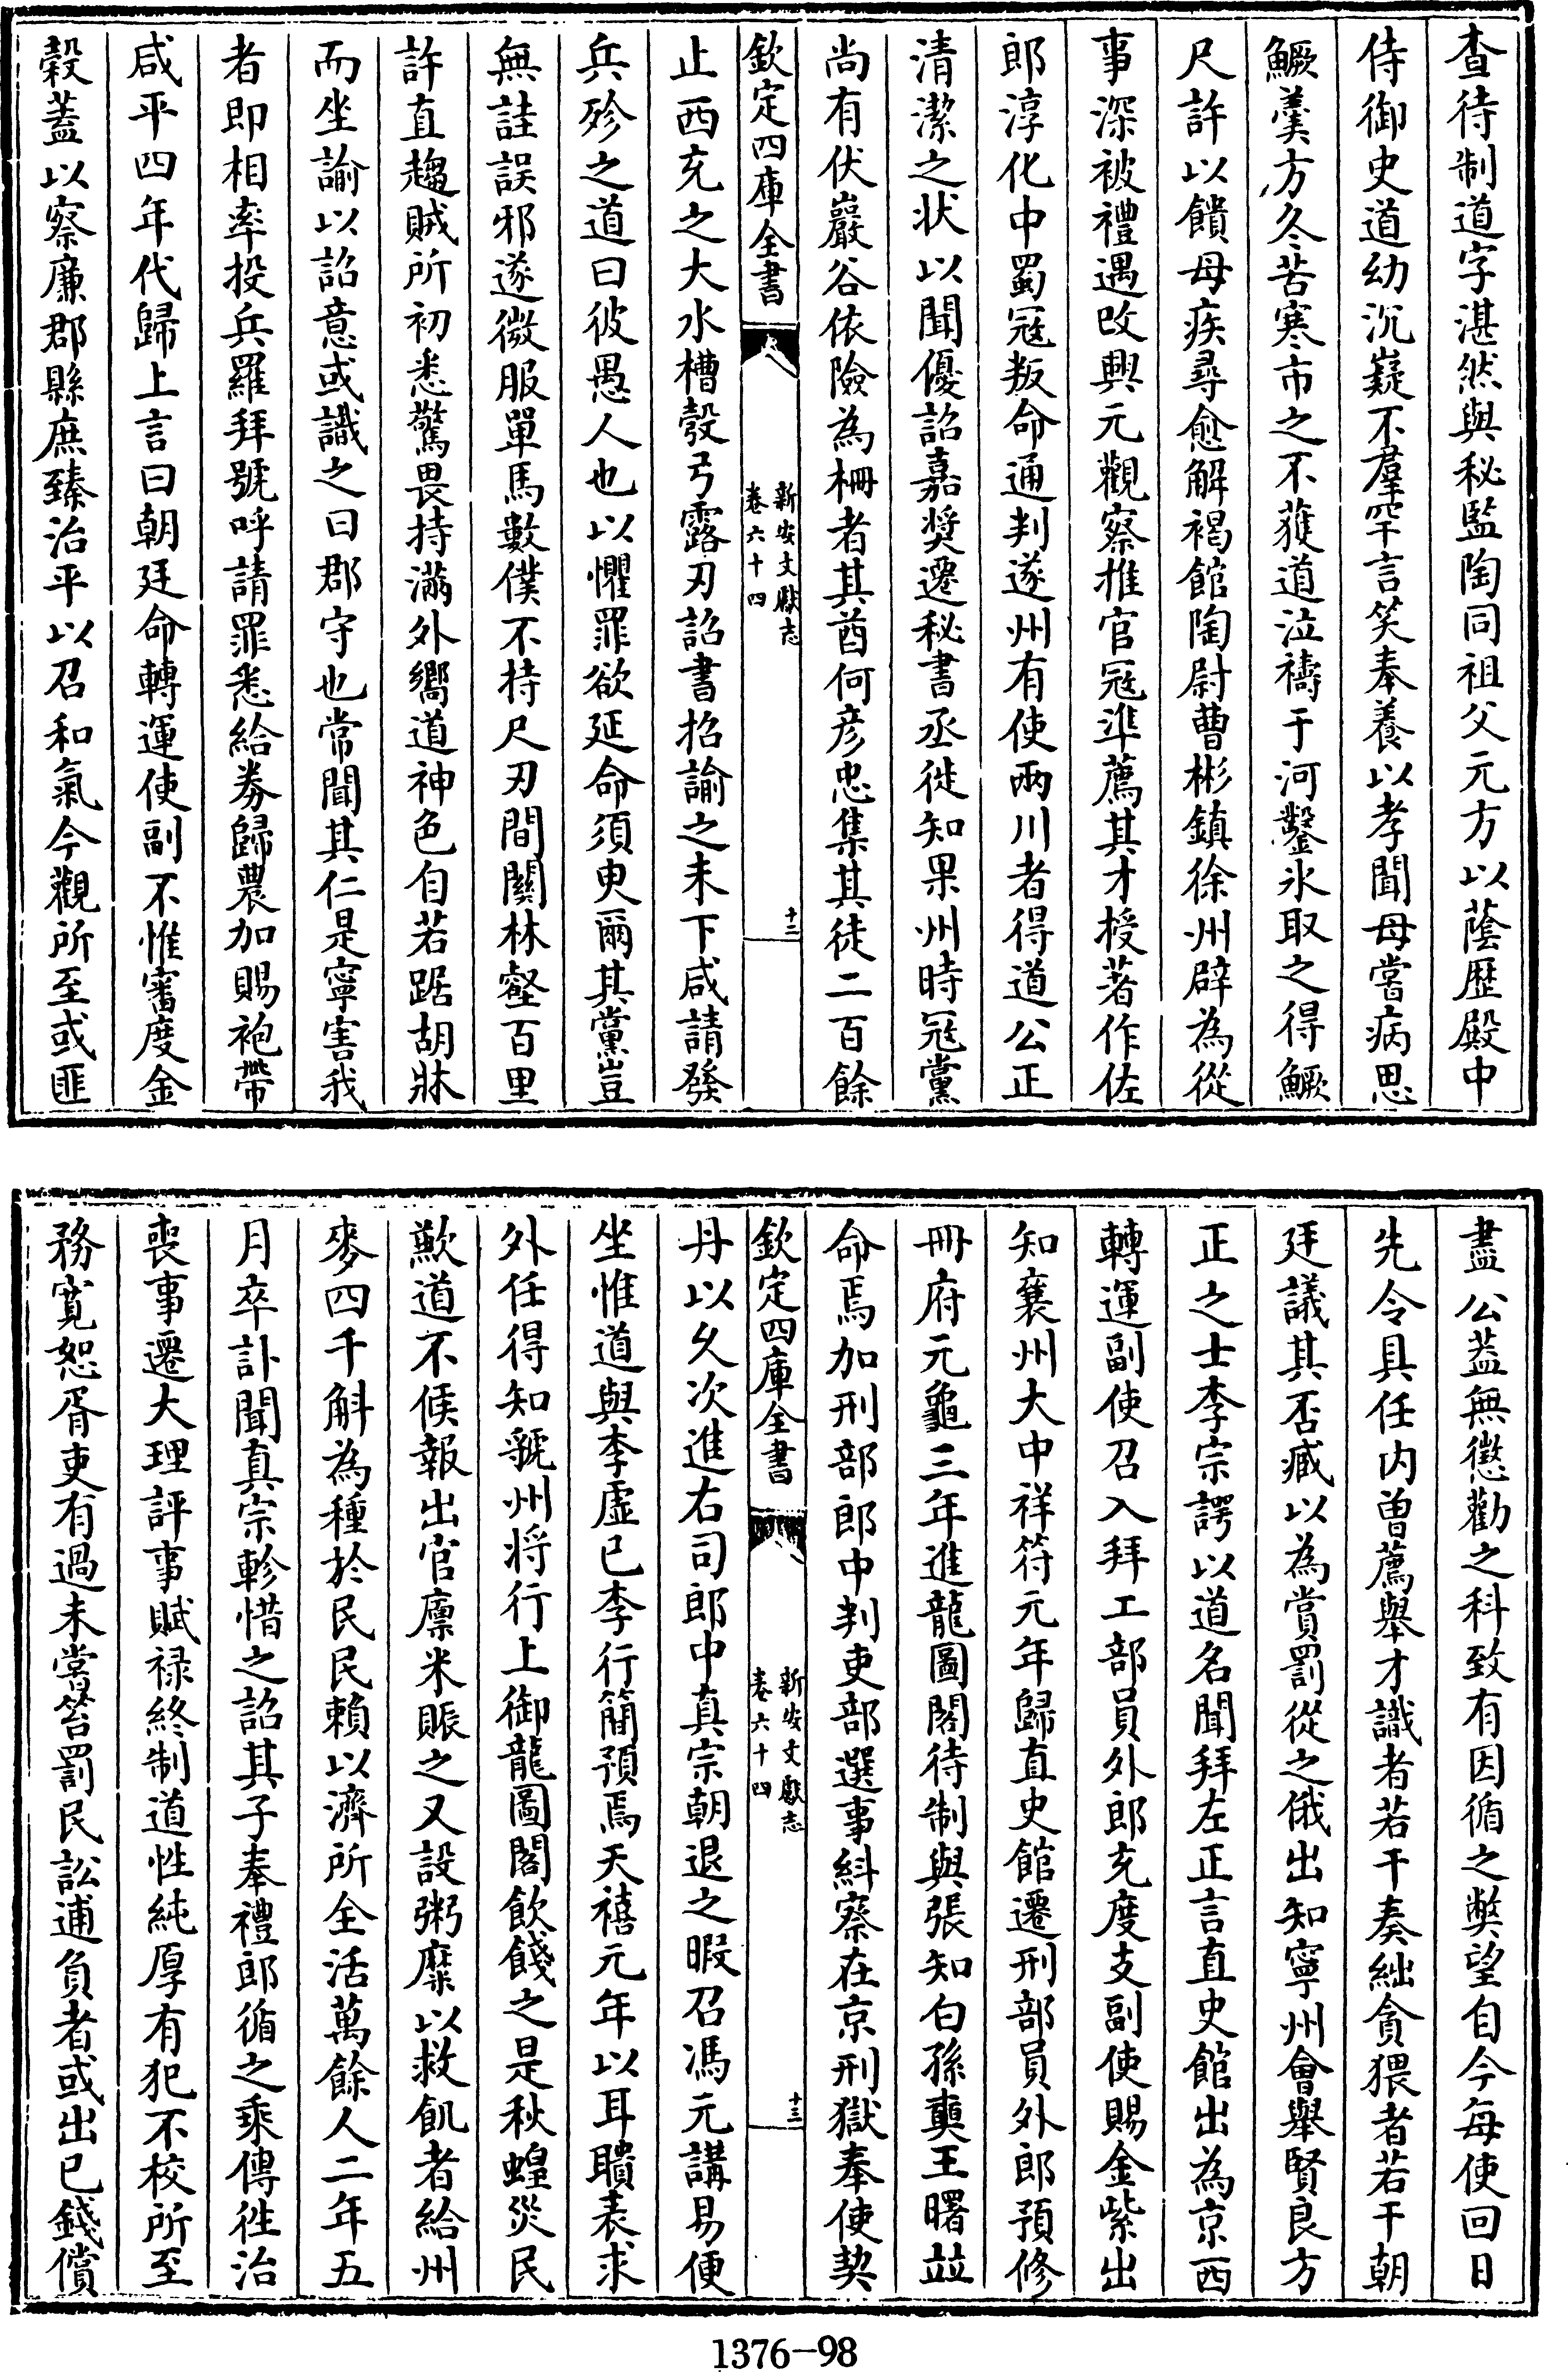 查待制道字湛然與秘監陶同祖父元方以蔭歴殿中
侍御史道幼沉嶷不羣罕言笑奉養以孝聞母嘗病思
鱖羮方冬苦寒市之不獲道泣禱于河鑿氷取之得鱖
尺許以饋母疾尋愈解褐館陶尉曹彬鎮徐州辟為從
事深被禮遇改興元觀察推官冦準薦其才授著作佐
郎淳化中蜀冦叛命通判遂州有使兩川者得道公正
清潔之状以聞優詔嘉奬遷秘書丞徙知果州時冦黨
尚有伏巖谷依險為柵者其酋何彦忠集其徒二百餘
欽定四庫全書
新安文獻志
卷六十四
十二
止西充之大水槽彀弓露刃詔書招諭之未下咸請發
兵殄之道曰彼愚人也以懼罪欲延命須臾爾其黨豈
無詿誤邪遂微服單馬數僕不持尺刃間關林壑百里
許直趨賊所初悉驚畏持滿外嚮道神色自若踞胡牀
而坐諭以詔意或識之曰郡守也常聞其仁是寧害我
者即相率投兵羅拜號呼請罪悉給劵歸農加賜袍帶
咸平四年代歸上言曰朝廷命轉運使副不惟審度金
穀蓋以察廉郡縣庶臻治平以召和氣今觀所至或匪
盡公蓋無懲勸之科致有因循之獘望自今每使回日
先令具任内曽薦舉才識者若干奏絀貪猥者若干朝
廷議其否臧以為賞罰從之俄出知寧州會舉賢良方
正之士李宗諤以道名聞拜左正言直史館出為京西
轉運副使召入拜工部員外郎充度支副使賜金紫出
知襄州大中祥符元年歸直史館遷刑部員外郎預修
冊府元龜三年進龍圖閣待制與張知白孫奭王曙並
命焉加刑部郎中判吏部選事糾察在京刑獄奉使契
欽定四庫全書
新安文獻志
卷六十四
十三
丹以乆次進右司郎中真宗朝退之暇召馮元講易便
坐惟道與李虚已李行簡預焉天禧元年以耳聵表求
外任得知虢州将行上御龍圖閣飲餞之是秋蝗災民
歉道不候報出官廪米賑之又設粥糜以救飢者給州
麥四千斛為種於民民賴以濟所全活萬餘人二年五
月卒訃聞真宗軫惜之詔其子奉禮郎循之乘傳徃治
喪事遷大理評事賦禄終制道性純厚有犯不校所至
務寛恕胥吏有過未嘗笞罰民訟逋負者或出已錢償
1376-98